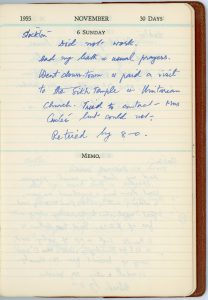 1955 NOVEMBER 30 DAYS
6 SUNDAY
Stockton
Did not work.
Had my bath & usual prayers.
Went down town & paid a visit
to the Sikh Temple & Unitarian
Church. Tried to contact Mrs
but could not.
Retired by 8-0.
MEMO.